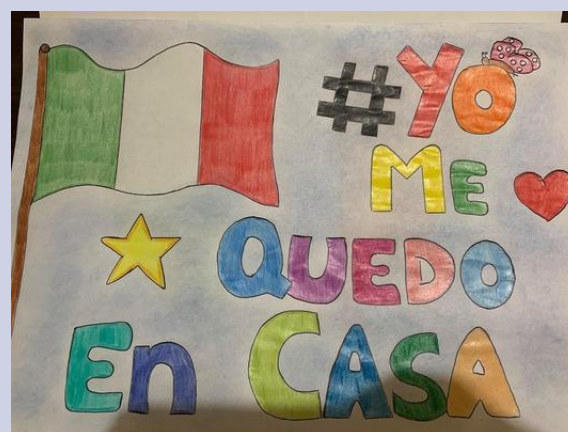 #YO
ME
QUEDO
En CASA